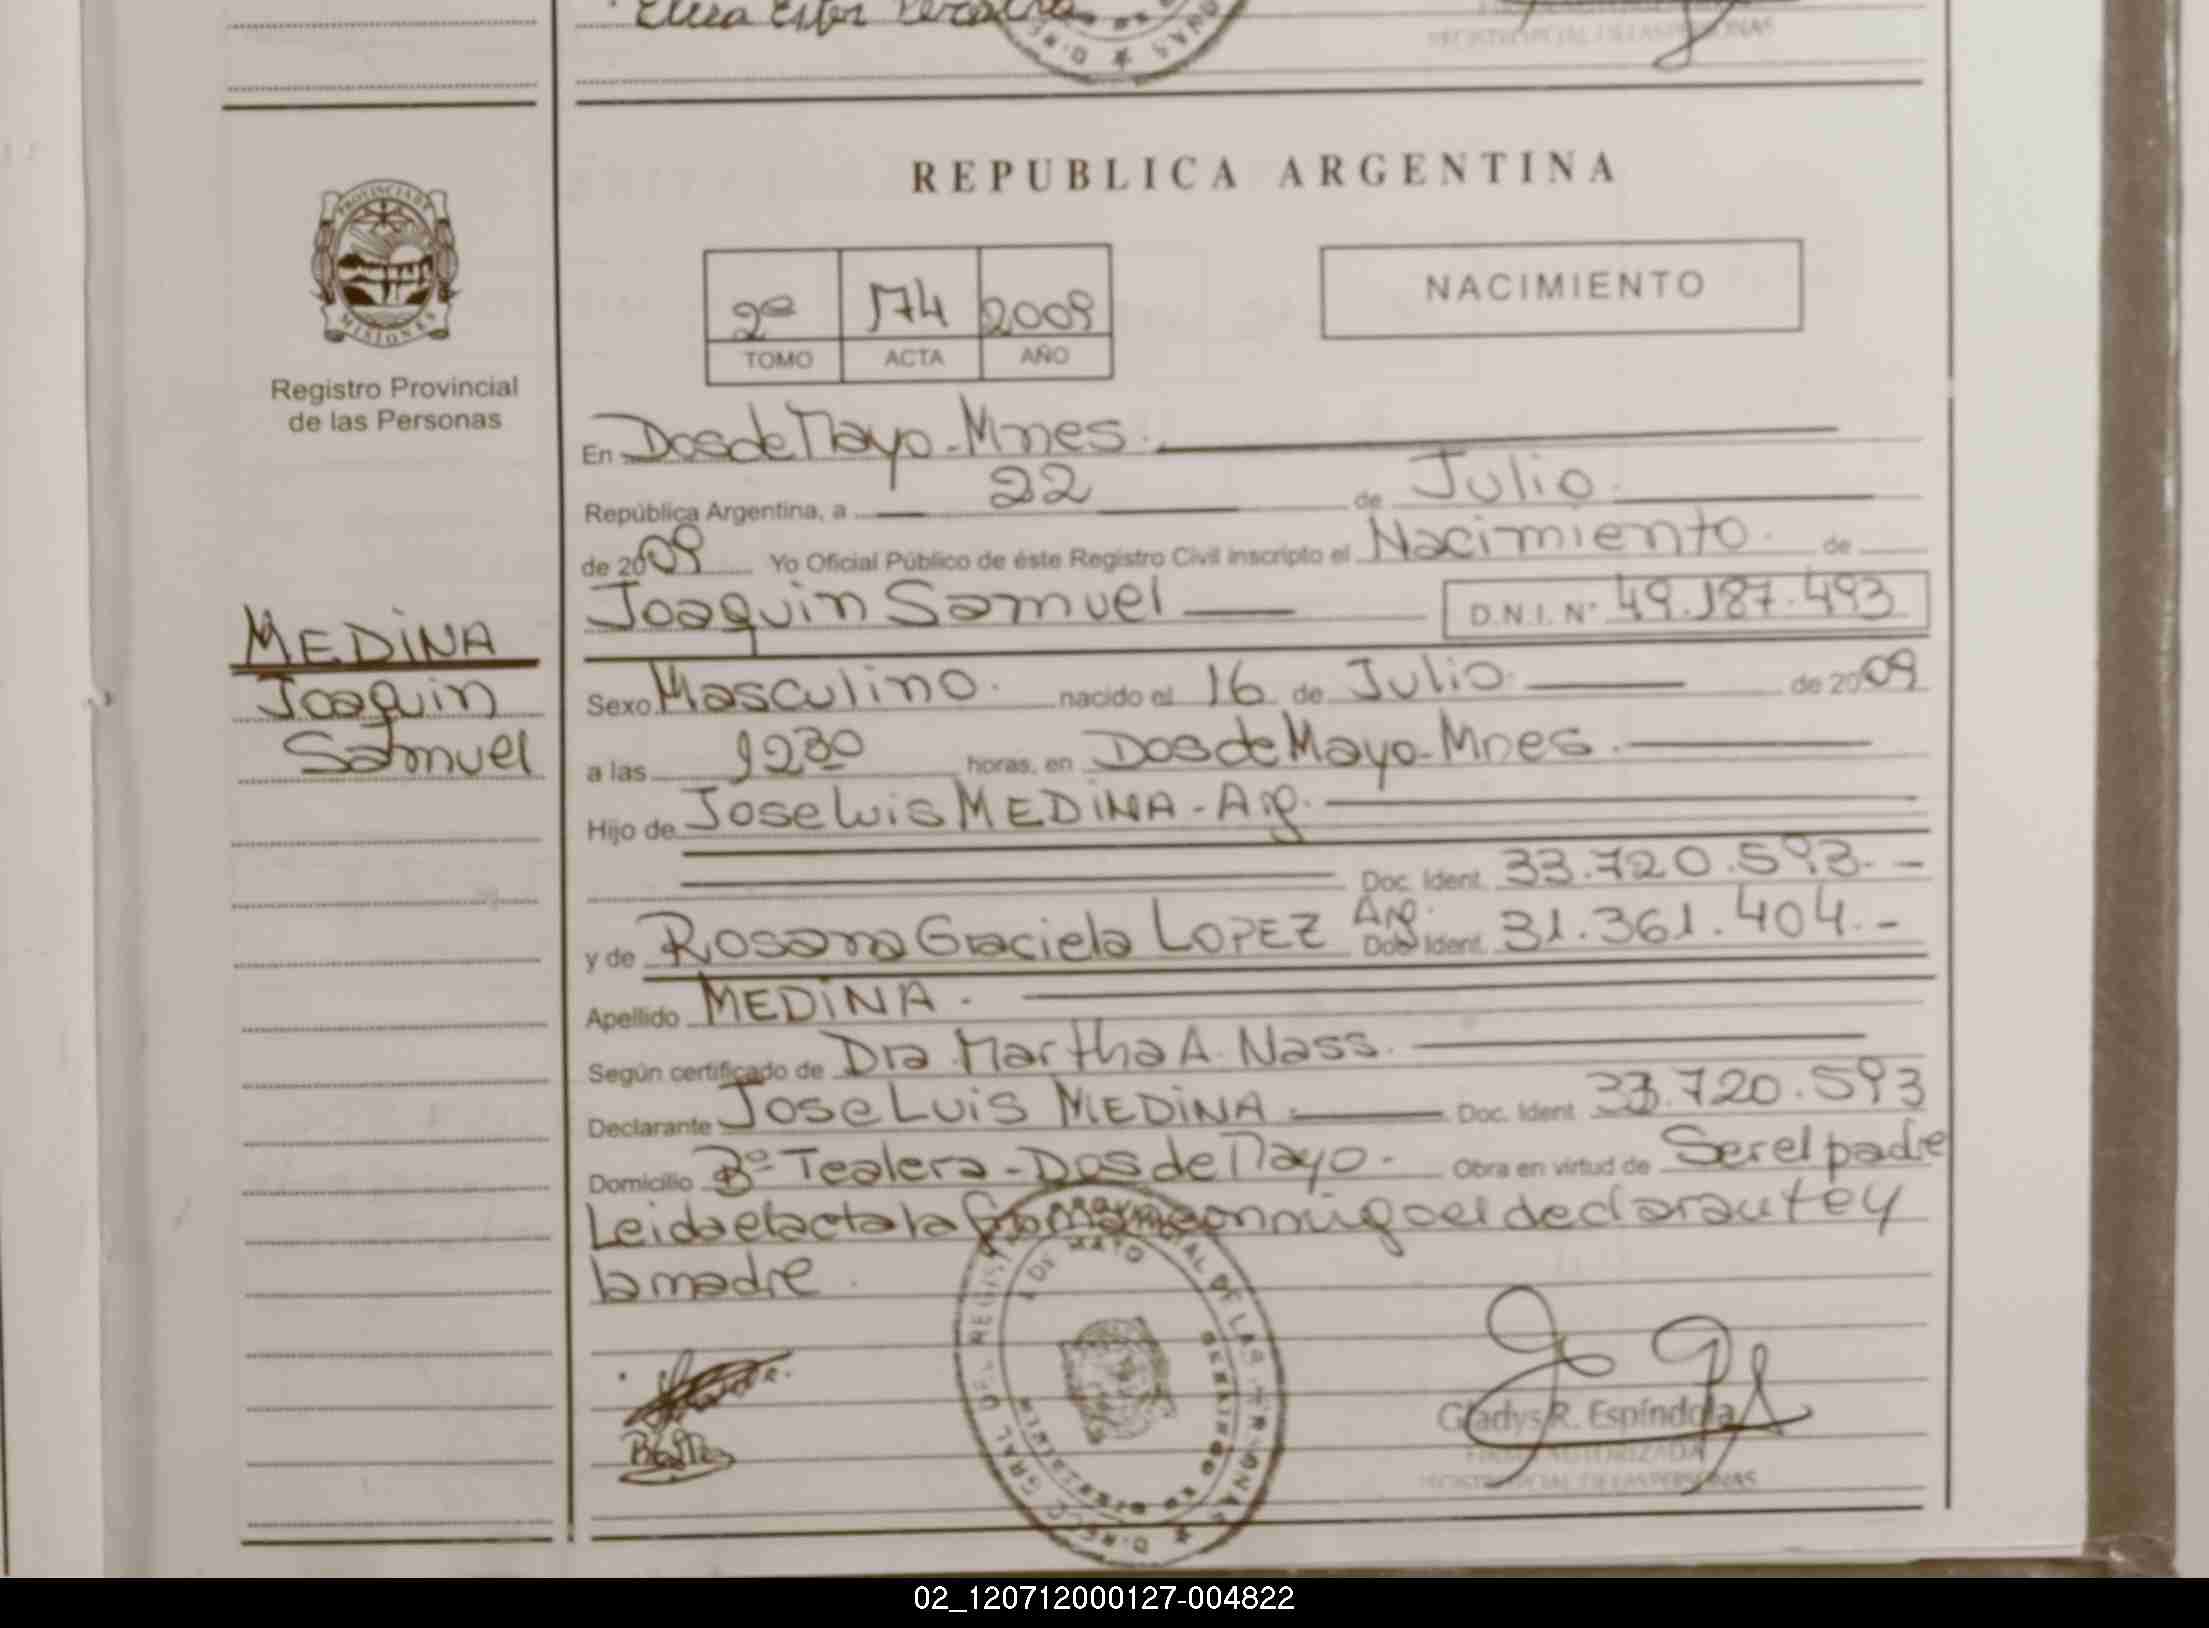 Elisa Ester
REGISTRO PCIAL. DE LAS PERSONAS
REPUBLICA ARGENTINA
PROVINCIA DE
MISIONES
Registro Provincial
de las Personas
2º 174 2009
TOMO ACTA AÑO
NACIMIENTO
En Dos de Mayo - Mnes.
República Argentina, a 22 de Julio.
de 2009 Yo Oficial Público de éste Registro Civil inscripto el Nacimiento. de
Joaquin Samuel D.N.I. Nº 49.187.493
MEDINA
Joaquin
Samuel
Sexo Masculino. nacido el 16 de Julio. de 2009
a las 1230 horas, en Dos de Mayo - Mnes.
Hijo de Jose Luis MEDINA - Arg.
Doc. Ident. 33.720.593.-
y de Rosana Graciela LOPEZ Arg. Doc. Ident. 31.361.404.-
Apellido MEDINA.
Según certificado de Dra. Martha A. Nass.
Declarante Jose Luis MEDINA. Doc. Ident. 33.720.593
Domicilio Bº Tealera - Dos de Mayo. Obra en virtud de Ser el padre
Leida el acta la firman conmigo el declarante y
la madre.
DIRECC. GRAL. DEL REGISTRO PROVINCIAL DE LAS PERSONAS
2 DE MAYO
MISIONES
Gladys R. Espíndola
FIRMA AUTORIZADA
REGISTRO PCIAL. DE LAS PERSONAS
02_120712000127-004822